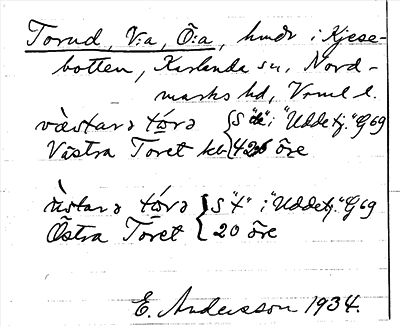 Torud, V:a, Ö:a, hmdr i Kjese-
botten, Karlanda sn, Nord-
marks hd, Vrml l.
västarə tórə { S "dö" i "Uddetj." G 69
Västra Toret kb { 426 öre
üstarə tórə { S "t" i "Uddetj." G 69
Östra Toret { 20 öre
E. Andersson 1934.